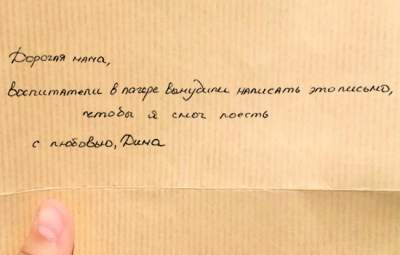 Дорогая мама,
воспитатели в лагере вынудили написать это письмо,
чтобы я смог поесть
с любовью, Дима